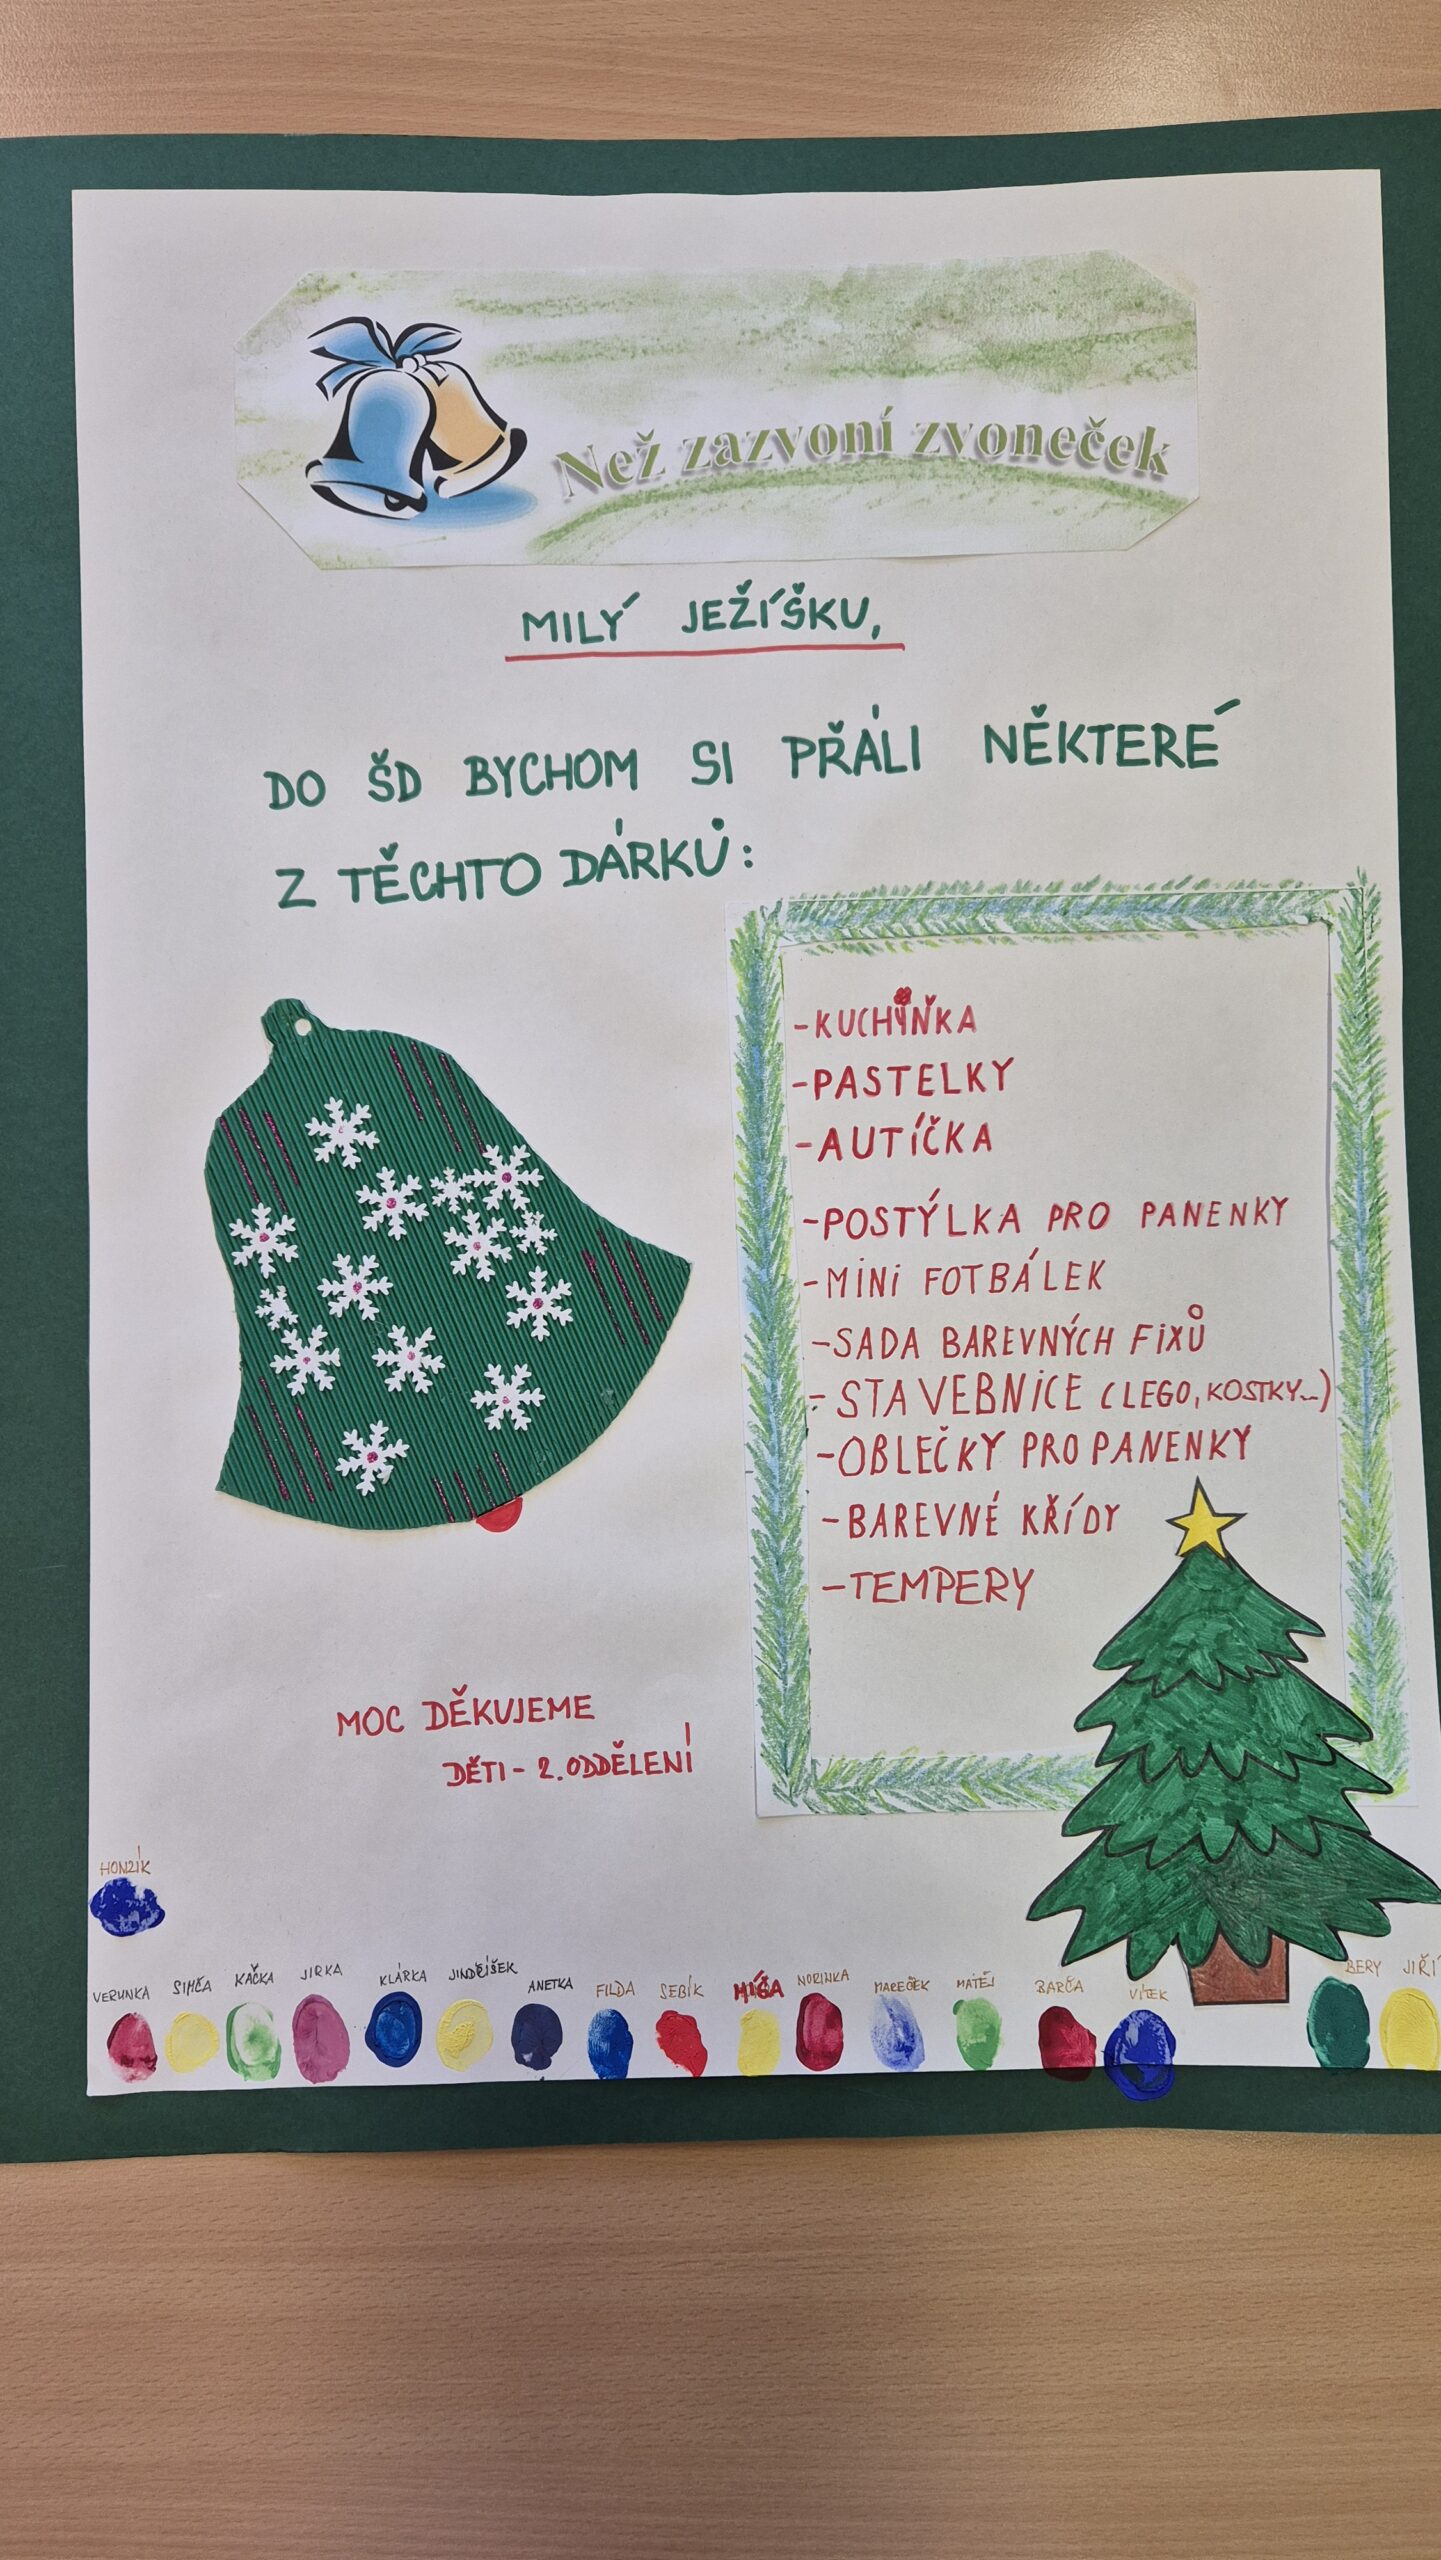 Než zazvoní zvoneček
MILÝ JEŽÍŠKU,
DO ŠD BYCHOM SI PŘÁLI NĚKTERÉ
Z TĚCHTO DÁRKŮ:
-KUCHYŇKA
-PASTELKY
-AUTÍČKA
-POSTÝLKA PRO PANENKY
-MINI FOTBÁLEK
-SADA BAREVNÝCH FIXŮ
-STAVEBNICE (LEGO, KOSTKY...)
-OBLEČKY PRO PANENKY
-BAREVNÉ KŘÍDY
-TEMPERY
MOC DĚKUJEME
DĚTI - 2. ODDĚLENÍ
HONZÍK
VERUNKA SIMČA KAČKA JIRKA KLÁRKA JINDŘÍŠEK ANETKA FILDA SEBÍK MÍŠA NORINKA MAREČEK MATĚJ BARČA VÍTEK BERY JIŘÍ